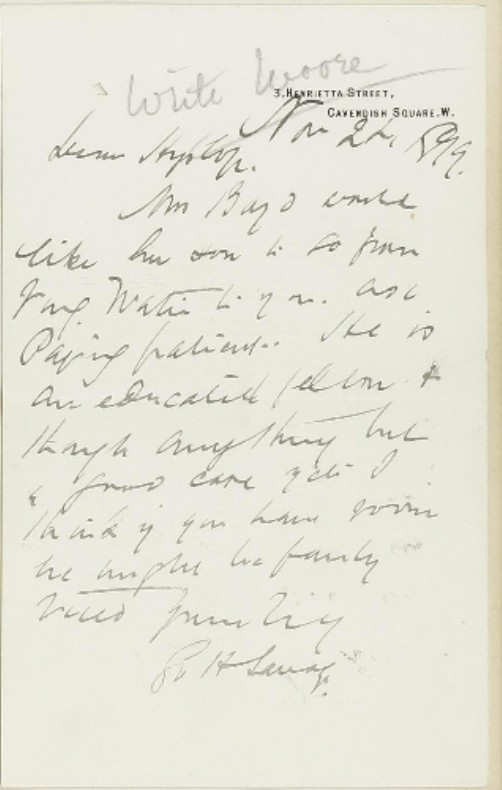 Write Moore
3, HENRIETTA STREET,
CAVENDISH SQUARE. W.
Nov 24 1899.
Dear Hyslop.
Mrs Boyd would
like her son to go from
to you. as a
Paying patient. He is
an educated fellow &
though anything but
a good case yet I
think if you have room
he might be fairly
tried Yours truly
Geo H Savage.